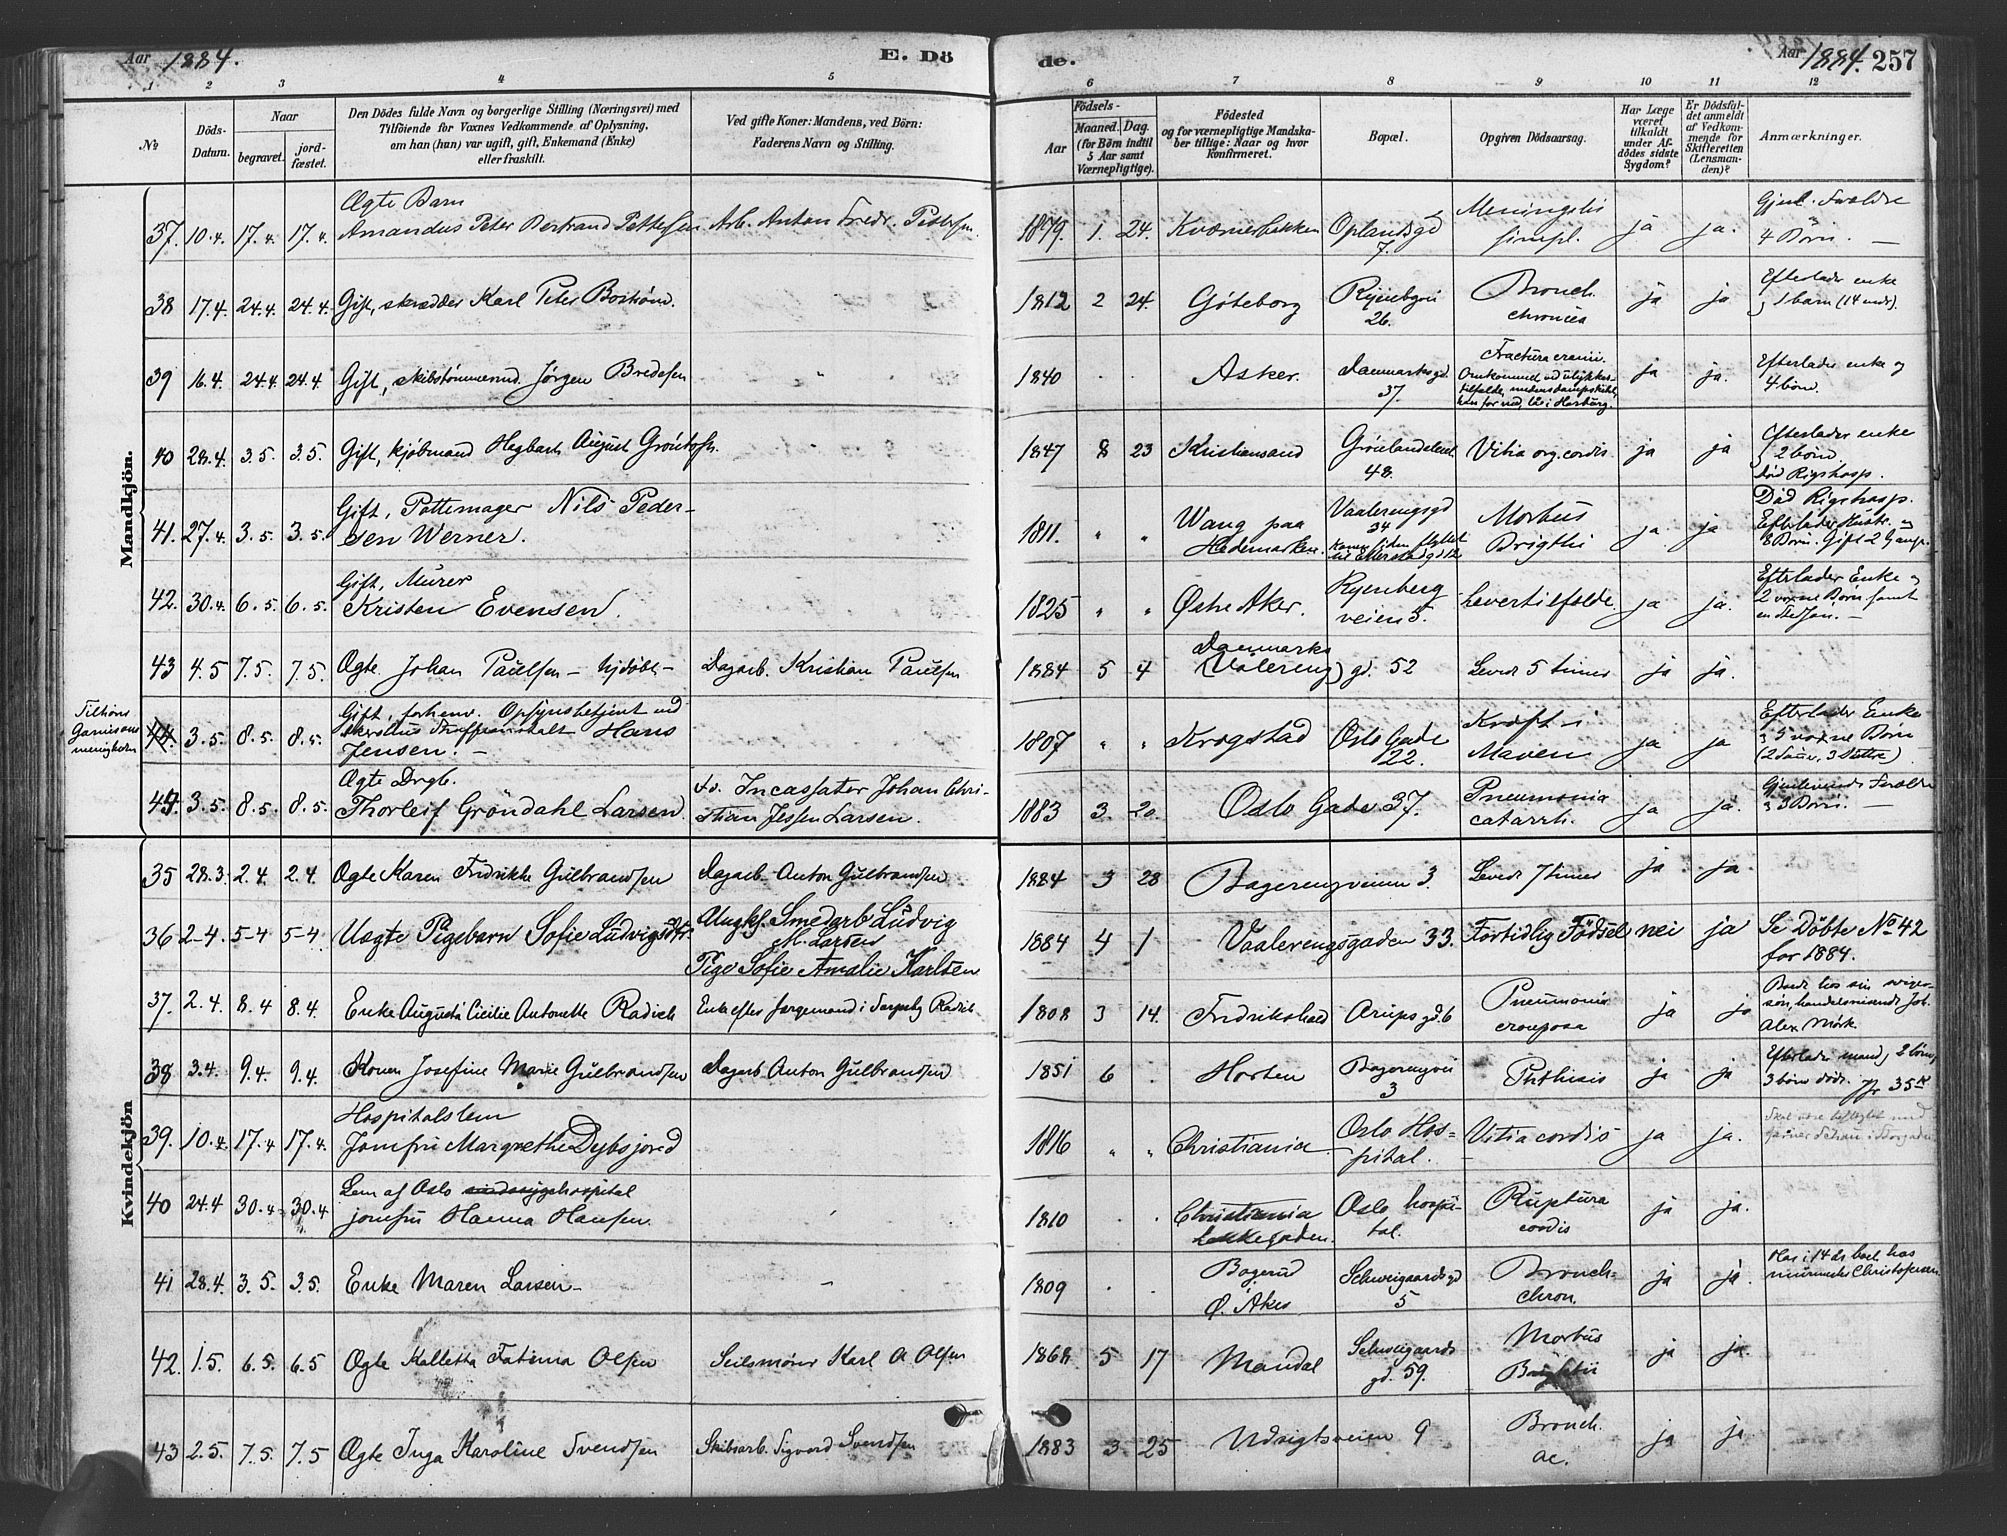 Aar 1884. E. Dö de. Aar 1884. 257
1 2 3 4 5 6 7 8 9 10 11 12
No
Döds-Datum.
Naar
begravet.
jord-fæstet.
Den Dödes fulde Navn og borgerlige Stilling (Næringsvei) med
Tilföiende for Voxnes Vedkommende af Oplysning,
om han (hun) var ugift, gift, Enkemand (Enke)
eller fraskilt.
Ved gifte Koner: Mandens, ved Börn:
Faderens Navn og Stilling.
Födsels-
Aar
Maaned. Dag.
(for Börn indtil
5 Aar samt
Værnepligtige).
Födested
og for værnepligtige Mandska-
ber tillige: Naar og hvor
konfirmeret.
Bopæl.
Opgiven Dödsaarsag.
Har Læge
været
tilkaldt
under Af-
dödes sidste
Sygdom?
Er Dödsfal-
det anmeldt
af Vedkom-
mende for
Skifteretten
(Lensman-
den)?
Anmærkninger.
Mandkjön.
37. 10.4. 17.4. 17.4. Ægte Barn
Amandus Peter Bertrand Pettersen Arb. Anton Fredr. Pettersen. 1879. 1. 24. Kværnerbakken Oplandsgd 7. Meningitis simpl. ja ja. Gjenl. Forældre 4 Börn. —
38 17.4. 24.4. 24.4. Gift, skrædder Karl Peter Boström. 1812 2 24. Göteborg Ryenbgvei 26. Bronch. chronica ja ja Efterlader enke 1 barn
39 16.4. 24.4. 24.4 Gift, skibstømmermd. Jörgen Bredesen 1840 . . Asker. Danmarksgd. 37 Fractura cranii.
Omkommet ved ulykkes-
tilfælde, ja ja. Efterlader enke og 4 börn.
40 28.4. 3.5. 3.5. Gift, kjöbmand Hagbarth August 1847 8 23 Kristiansand Grönlandsleret 48. Vitia org. cordis ja ja Efterlader enke 2 börn.
död Rigshosp.
41. 27.4. 3.5. 3.5. Gift, Pottemager Nils Peder-
sen Werner. 1811. " " Wang paa Hedemarken. Vaalerengsgd 34 Morbus Brigthii ja ja Död Rigshosp.
Efterlader Hustr. og
8 Börn. Gift 2 Gange.
42. 30.4. 6.5. 6.5. Gift, Murer
Kristen Evensen. 1825 " " Østre Aker. Ryenberg
veien 5. Levertilfælde. ja ja. Efterlader Enke og
2 voxne Börn samt
en Stedsön. —
43 4.5 7.5. 7.5. Ægte Johan Paulsen — hjdöbt — Dagarb. Kristian Paulsen 1884 5 4 Danmarks
(Vaalereng) gd. 52 Levede 5 timer ja ja
Tilhörer
Garnisons
menigheden
44. 3.5. 8.5. 8.5. Gift, forhenv. Opsynsbetjent ved
Akershus Straffeanstalt Hans
Jensen. — 1807 " " Krogstad Oslo Gade 22. Kræft i Maven ja ja Efterlader Enke
5 voxne Börn
(2 Sönner, 3 Döttre)
45. 3.5. 8.5. 8.5. Ægte Drgb.
Thorleif Gröndahl Larsen Fv. Incassator Johan Chri-
stian Jessen Larsen. 1883 3. 20. Oslo Gade 37. Pneumonia
catarrh. ja ja. Gjenlevende Forældre
3 Börn. —
Kvindekjön
35 28.3. 2.4. 2.4. Ægte Karen Fredrikke Gulbrandsen Dagarb. Anton Gulbrandsen 1884 3 28 Bagerengveien 3. Levede 7 timer ja ja.
36 2-4. 5-4 5-4 Uægte Pigebarn Sofie Ludvigsdtr. Ungkf. Smedarb. Ludvig
M. Larsen
Pige Sofie Amalie Karlsen 1884 4 1 Vaalerengsgaden 33. Fortidlig Födsel nei ja Se Döbte No 42
for 1884.
37. 2.4. 8.4 8.4. Enke Augusta Cicilie Antonette Radich Enke efter i Sarpsbg Radich 1808 3 14. Fredrikshald Arups gd. 6 Pneumonia
crouposa ja ja Boede hos sin sviger-
sön, handelsreisende Joh.
Alex. Mörk.
38 3.4. 9.4. 9.4. Konen Josefine Marie Gulbrandsen Dagarb. Anton Gulbrandsen 1851 6 . Horten Bagerengvei 3 Phthisis ja ja Efterlader mand, 2 börn,
3 börn döde.
39. 10.4. 17.4 17.4. Hospitalslem
Jomfru Margrethe Dybsjord 1816 " " Christiania Oslo Hos-
pital. Vitia cordis ja ja.
40 24.4 30.4 30.4 Lem af Oslo sindssygehospital
jomfru Hanna Hansen. 1810 . . Christiania
Lakkegaden. Oslo hospi-
tal. Ruptura
cordis ja ja.
41 28.4. 3.5. 3.5. Enke Maren Larsen — 1809 . . Bogerud
Ø. Aker Schweigaardsgd
5 Bronch.
chron. ja ja. Har i 14 år boet hos
murmester Christophersen.
42. 1.5. 6.5. 6.5 Ægte Kalletta Fatima Olsen Seilsmager Karl A Olsen 1868 5 17 Mandal Schweigaards
gd. 59. Morbus
Brightii ja ja.
43 2.5. 7.5. 7.5 Ægte Inga Karoline Svendsen Skibsarb. Sigvard Svendsen 1883 3. 25 Udsigtsveien 9 Bronch.
ac. ja ja